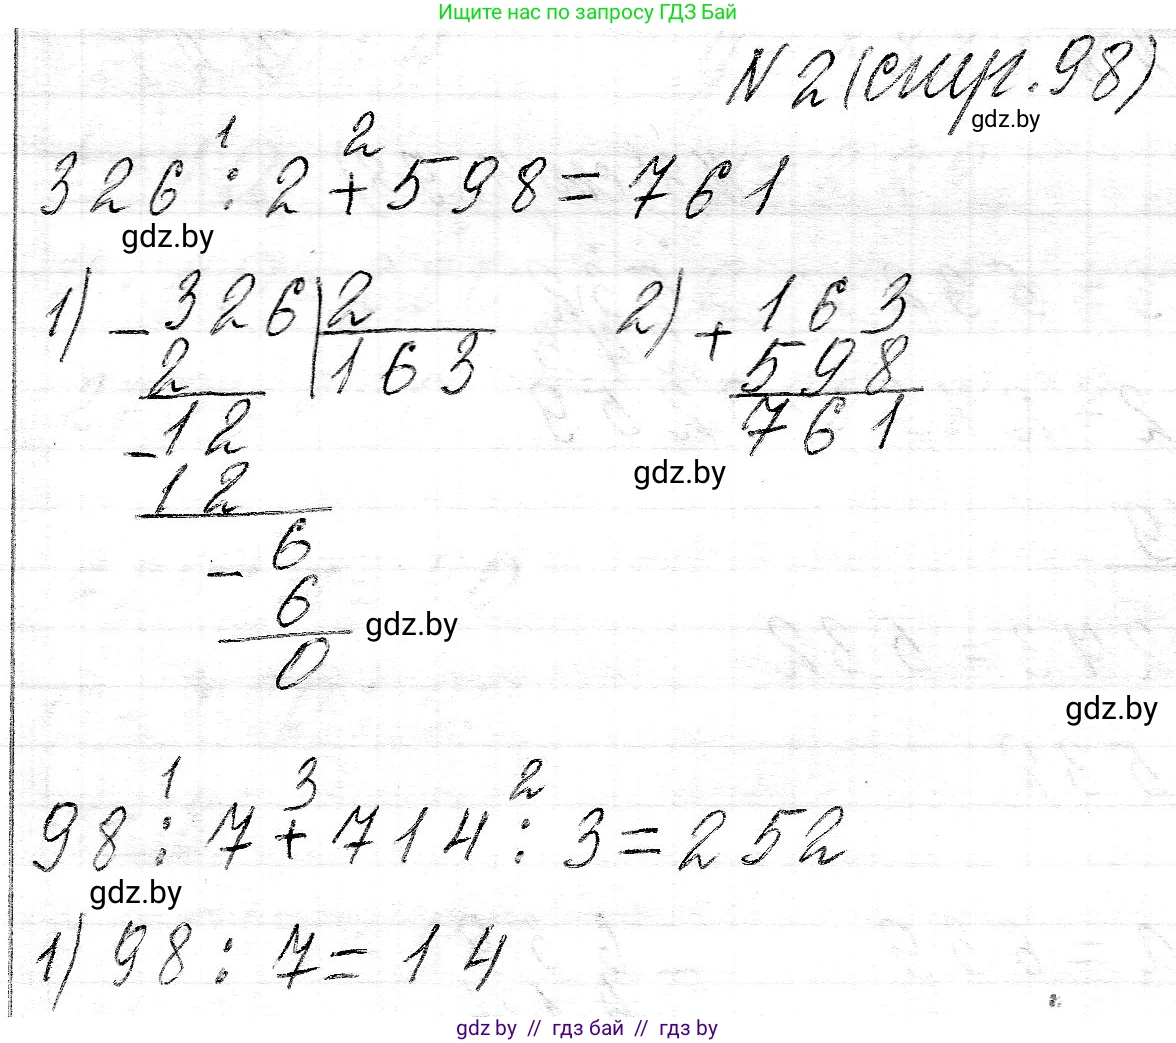 Ищите нас по запросу ГДЗ Бай
N 2 (стр. 98)
gdz.by
1 2
326 : 2 + 598 = 761
gdz.by
1) - 326 | 2 2) + 163
2 163 598
- 12 761
gdz.by
12
- 6
6
gdz.by
0
gdz.by
1 3 2
98 : 7 + 714 : 3 = 252
gdz.by
1) 98 : 7 = 14
gdz by // гдз бай // gdz by